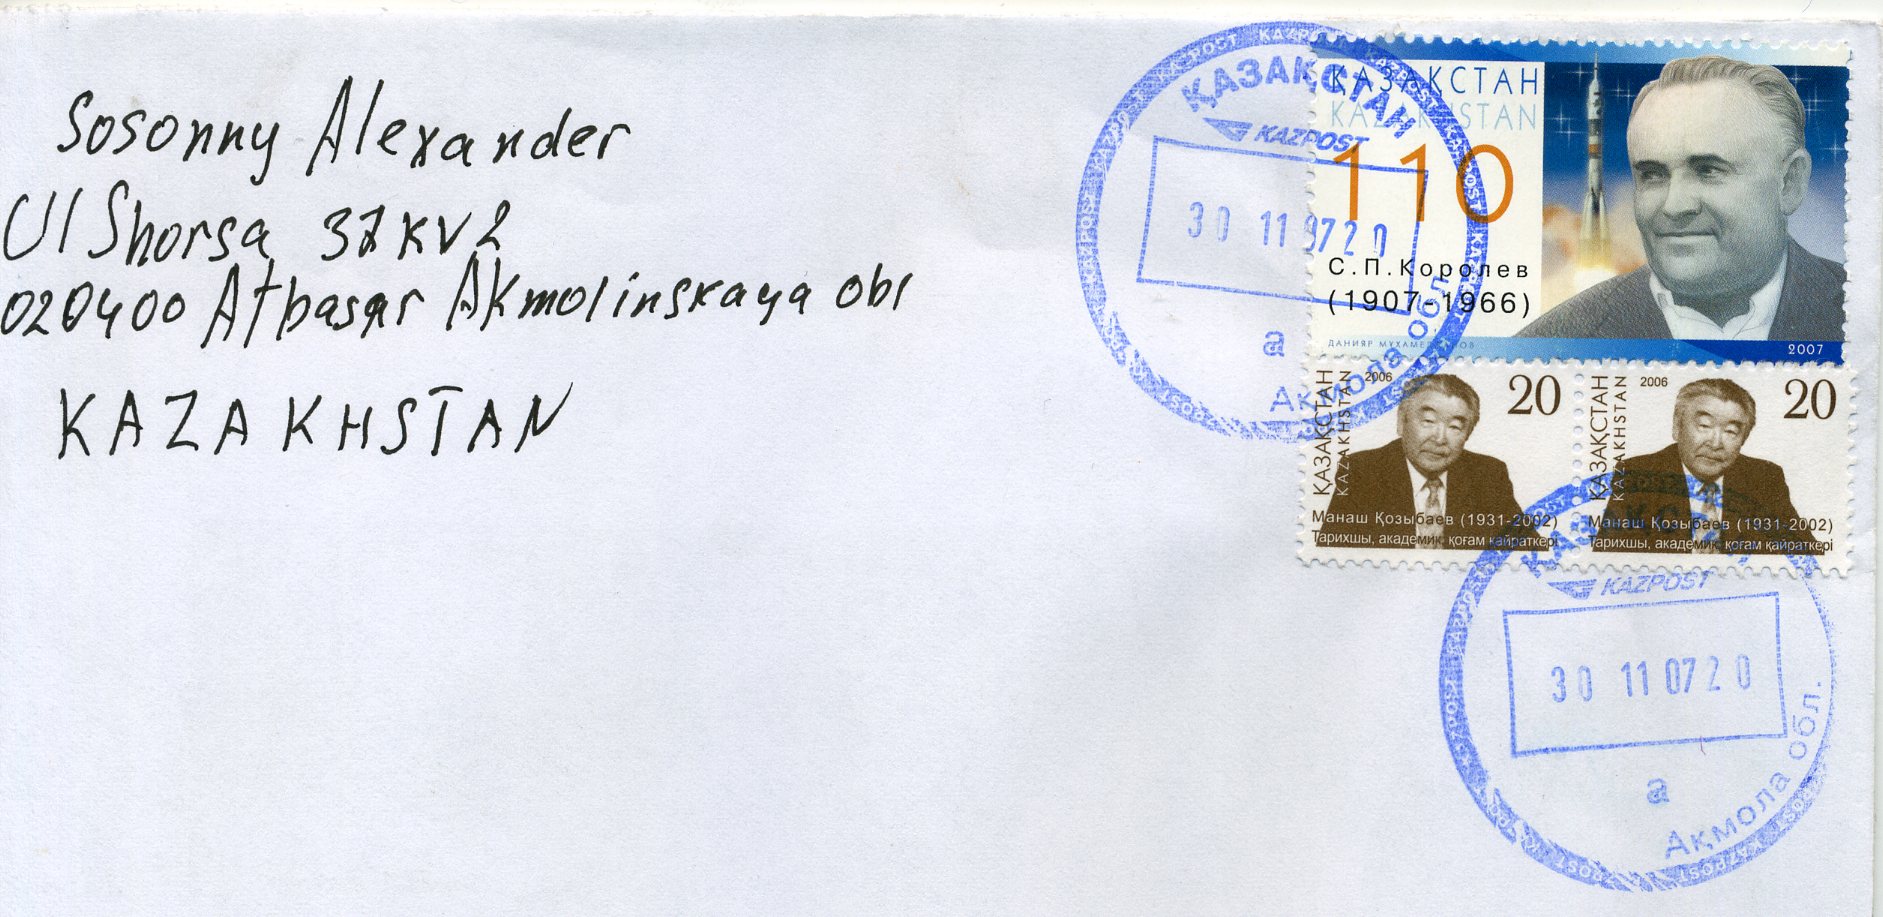 Sosonny Alexander
Ul Shorsa 37 kv 2
020400 Atbasar Akmolinskaya obl
KAZAKHSTAN
ҚАЗАҚСТАН
KAZPOST
30 11 07 20
а
Ақмола обл.
ҚАЗАҚСТАН
KAZAKHSTAN
110
С.П.Королев
(1907-1966)
2007
ҚАЗАҚСТАН
KAZAKHSTAN
2006
20
Манаш Қозыбаев (1931-2002)
Тарихшы, академик, қоғам қайраткері
ҚАЗАҚСТАН
KAZAKHSTAN
2006
20
Манаш Қозыбаев (1931-2002)
Тарихшы, академик, қоғам қайраткері
ҚАЗАҚСТАН
KAZPOST
30 11 07 20
а
Ақмола обл.